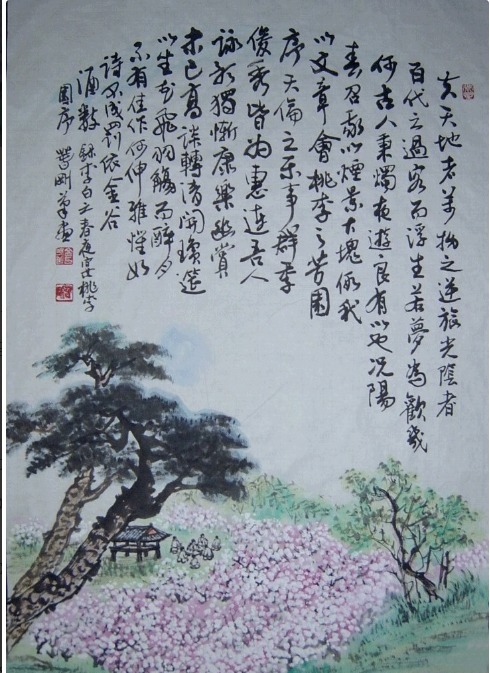 夫天地者萬物之逆旅光陰者
百代之過客而浮生若夢為歡幾
何古人秉燭夜遊良有以也況陽
春召我以煙景大塊假我
以文章會桃李之芳園
序天倫之樂事群季
俊秀皆為惠連吾人
詠歌獨慚康樂幽賞
未已高談轉清開瓊筵
以坐花飛羽觴而醉月
不有佳作何伸雅懷如
詩不成罰依金谷
酒數 錄李白之春夜宴桃李
園序